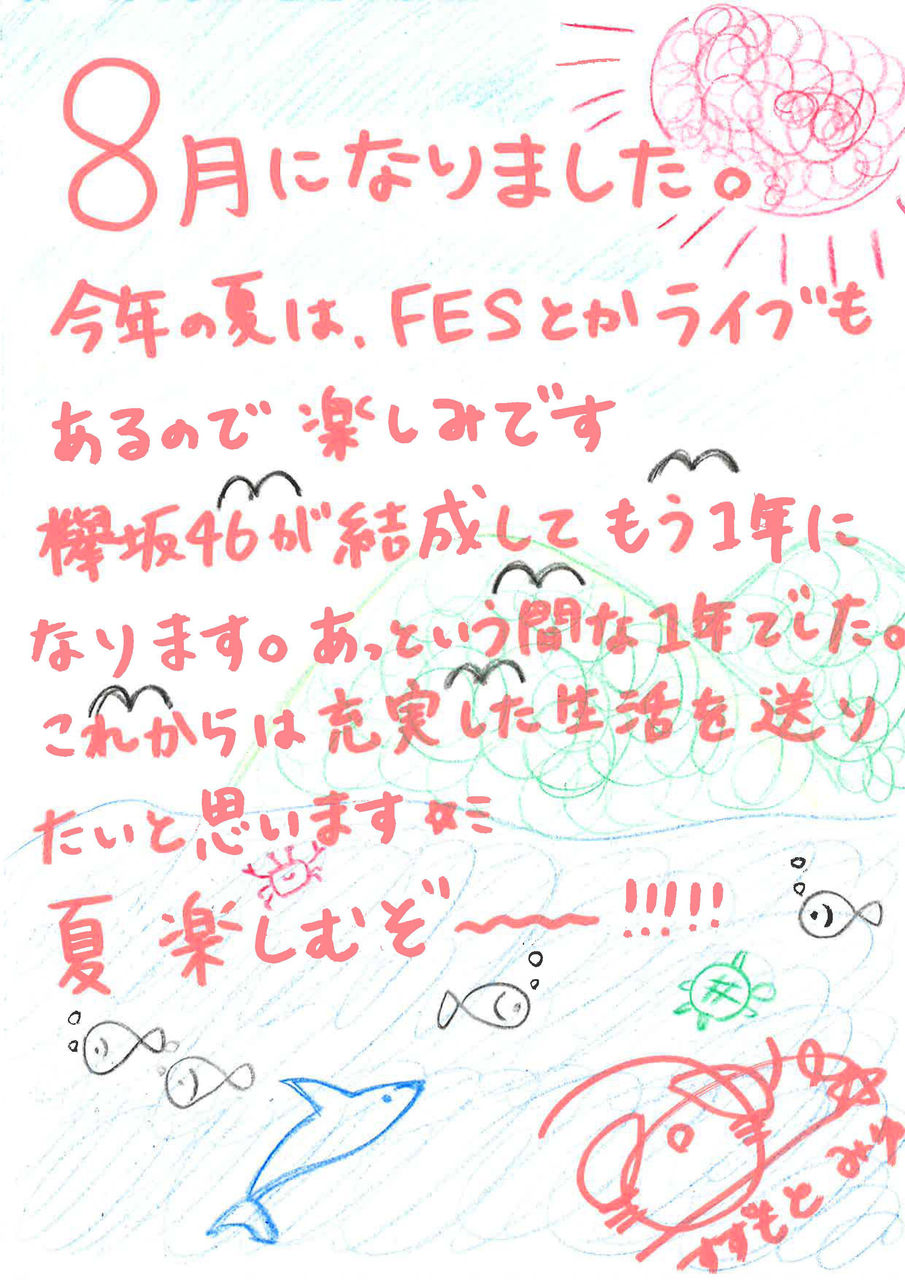 8月になりました。
今年の夏は、FESとかライブも
あるので 楽しみです
欅坂46が結成して もう1年に
なります。あっという間な1年でした。
これからは充実した生活を送り
たいと思います☆ミ
夏 楽しむぞ〜〜 !!!!!
すずもと みゆ